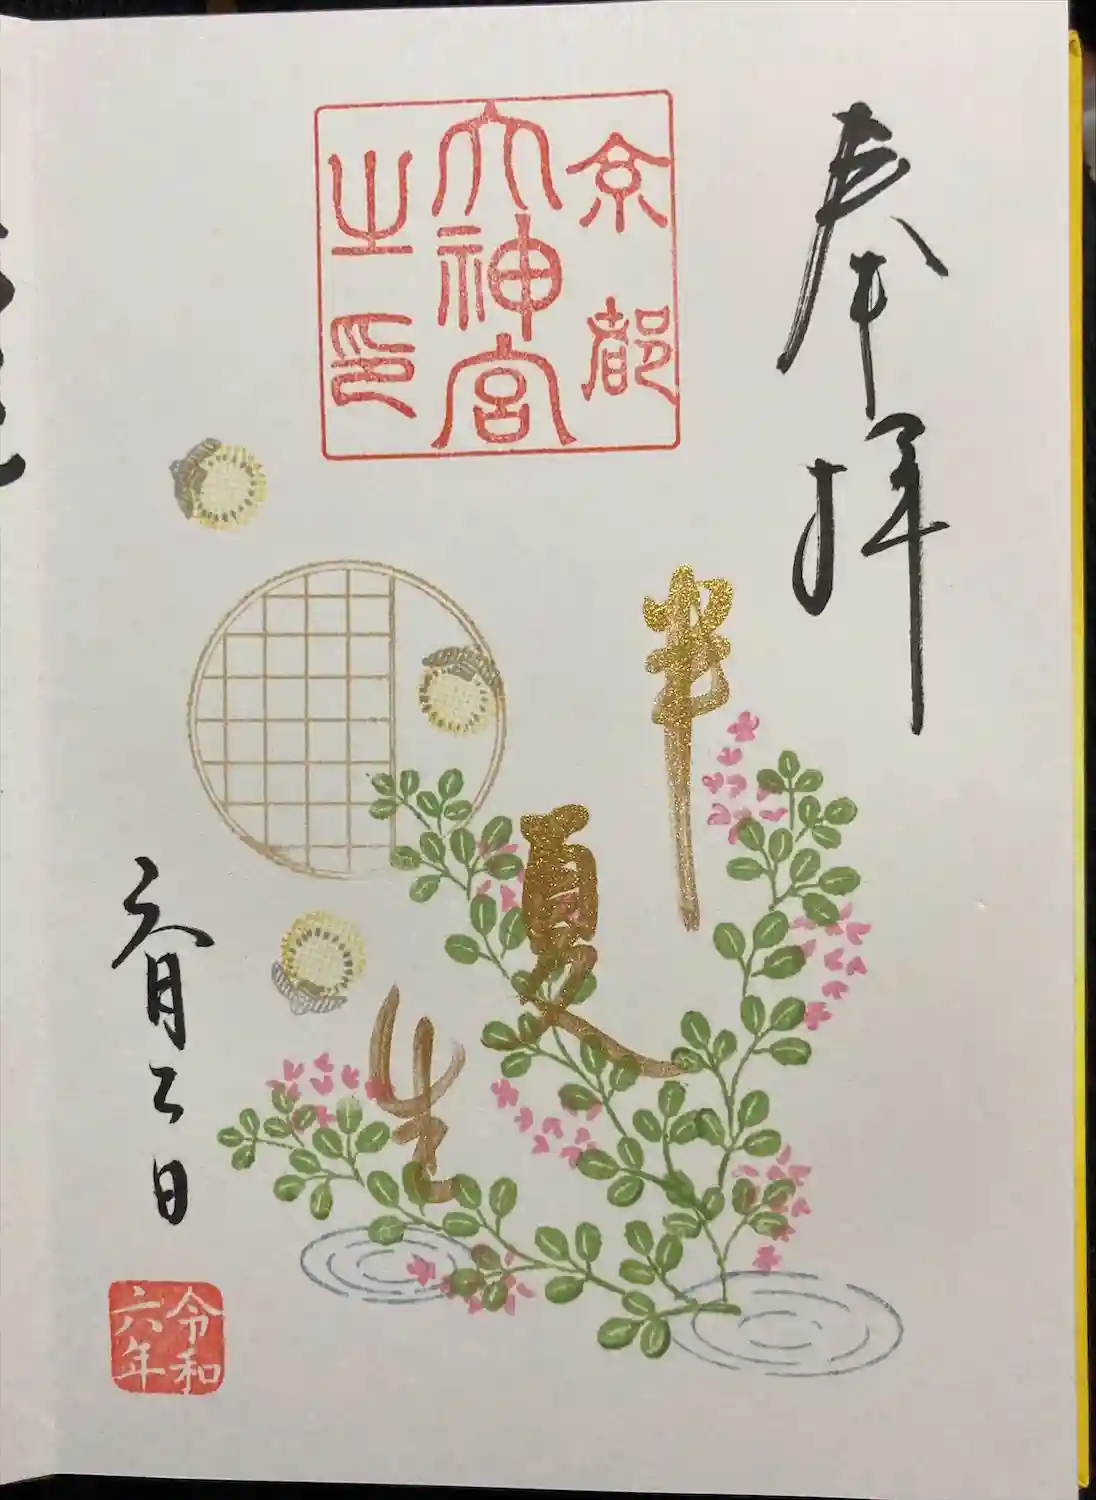 奉拝
京都
大神宮
之印
半夏生
六月二日
令和
六年